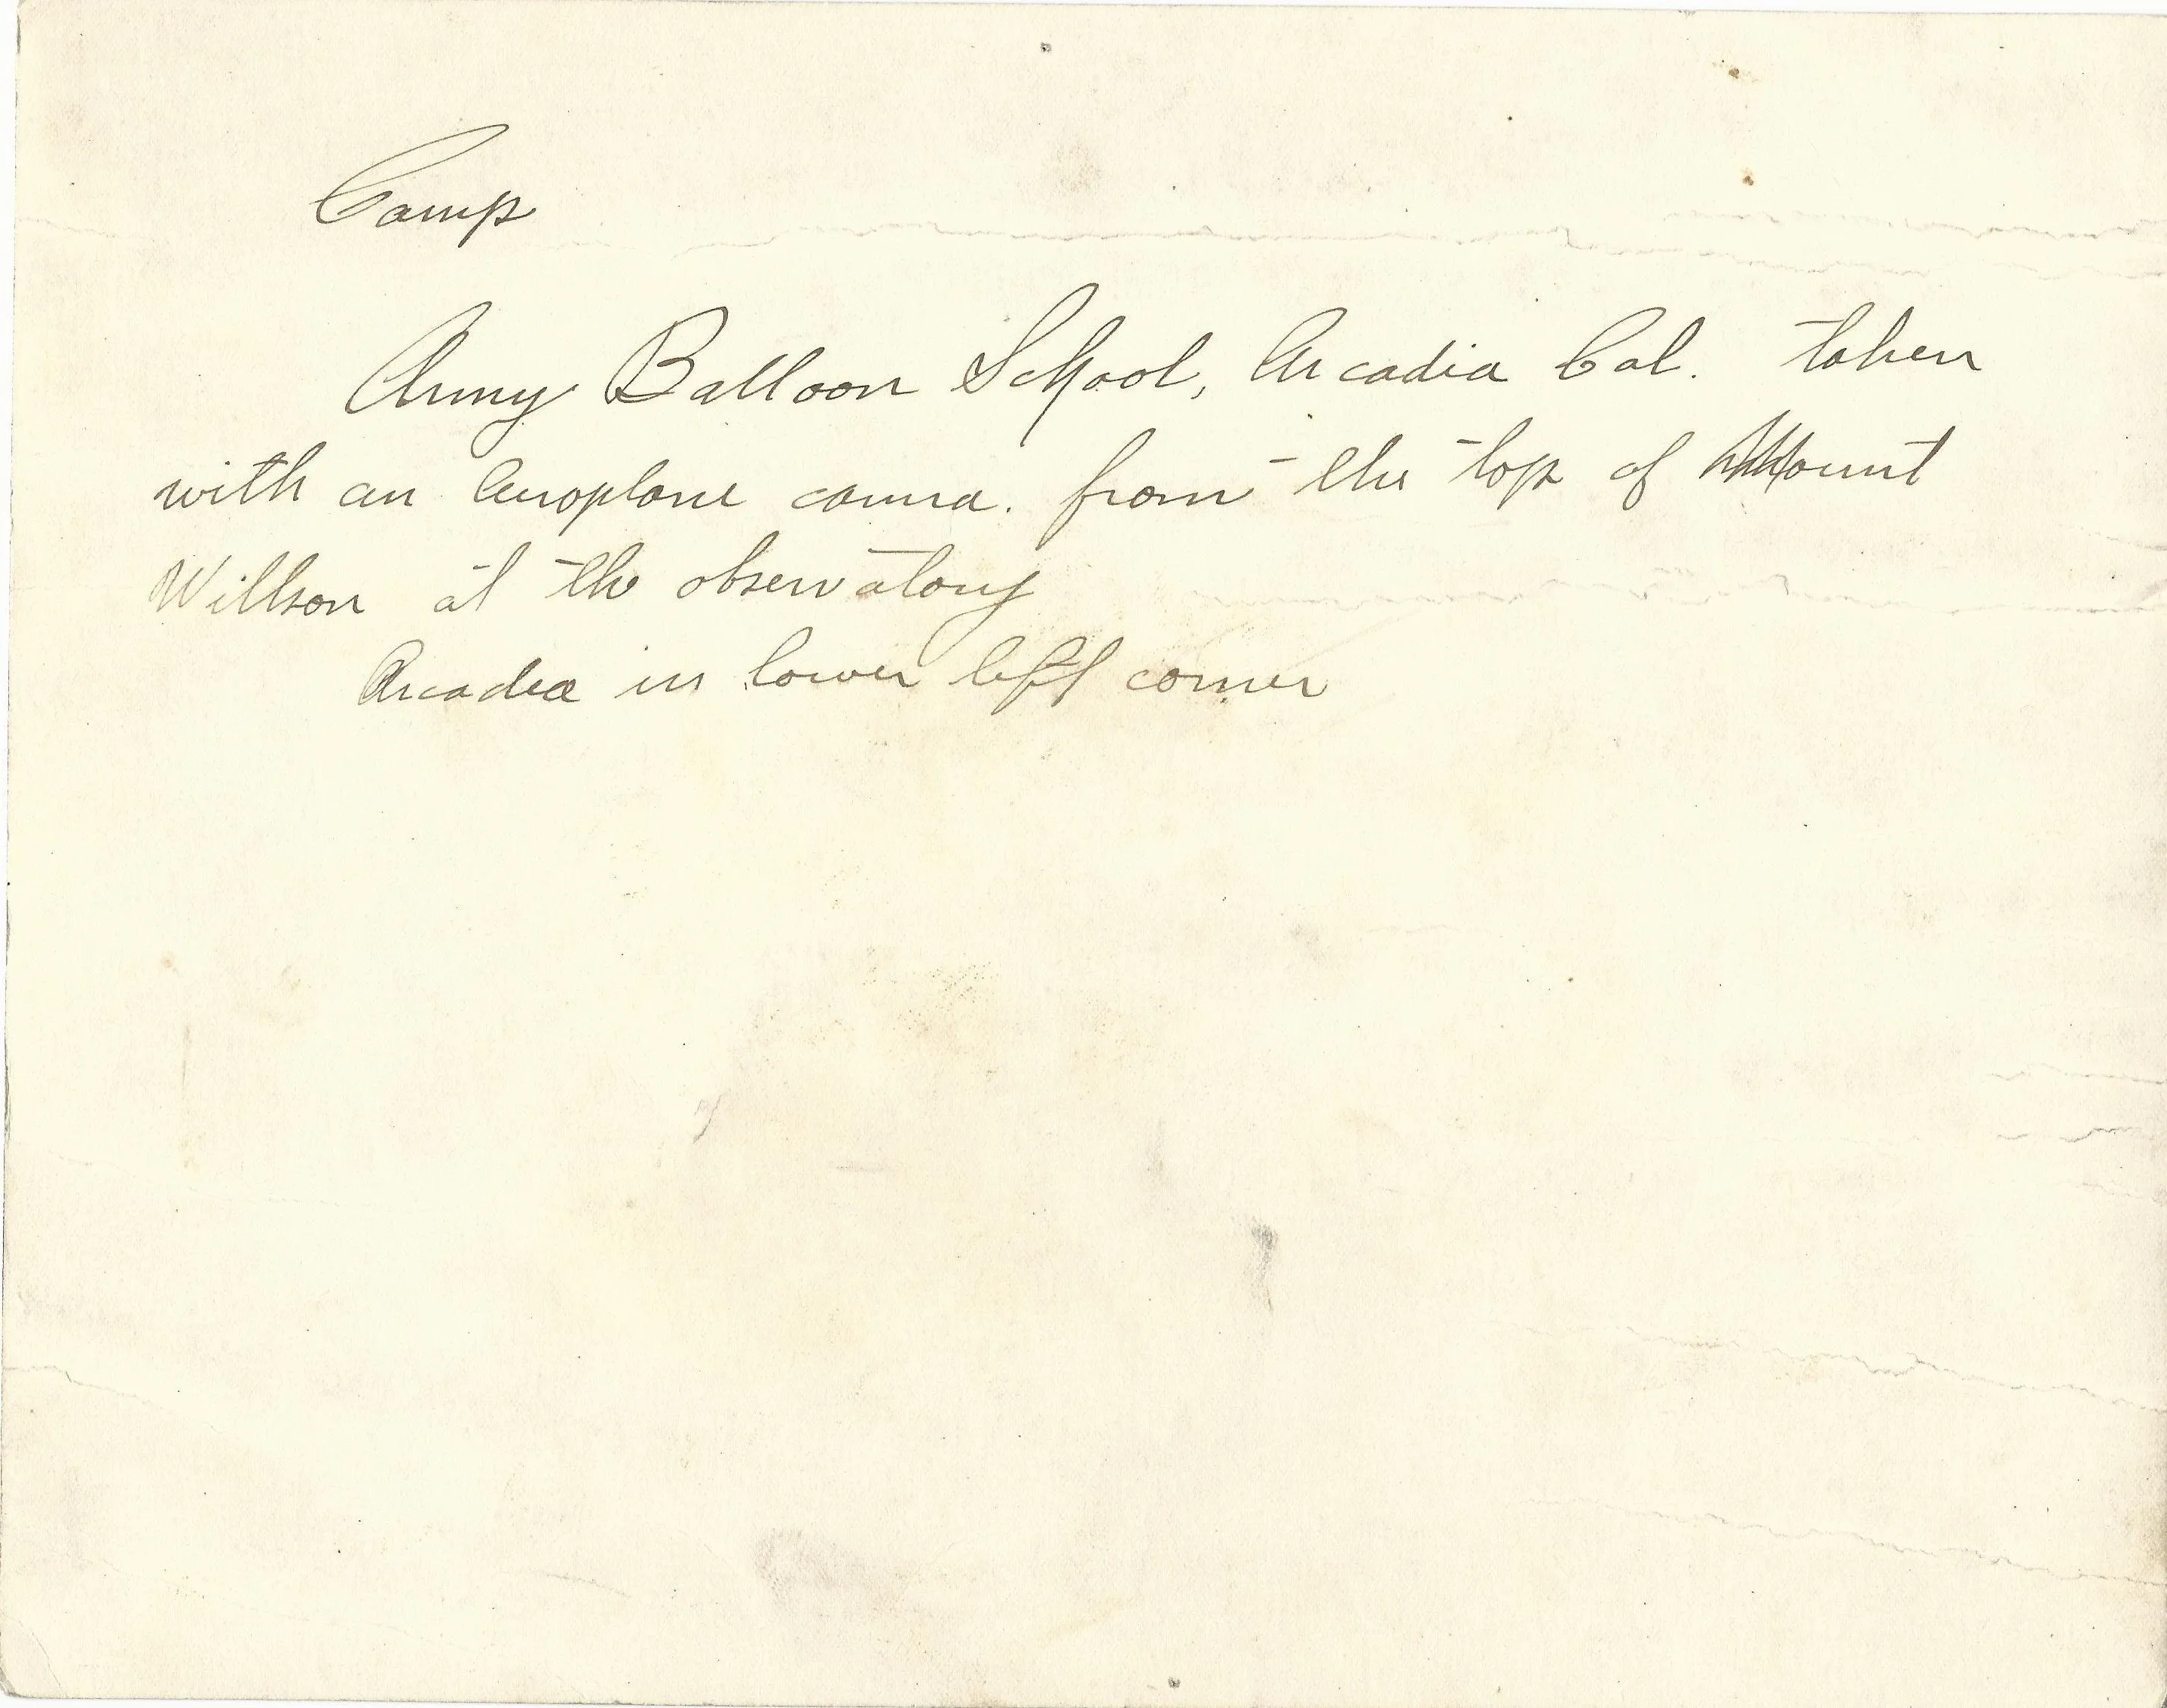 Camp
Army Balloon School, Arcadia Cal. taken
with an Aeroplane camra. from the top of Mount
Willson at the observatory
Arcadia in lower left corner